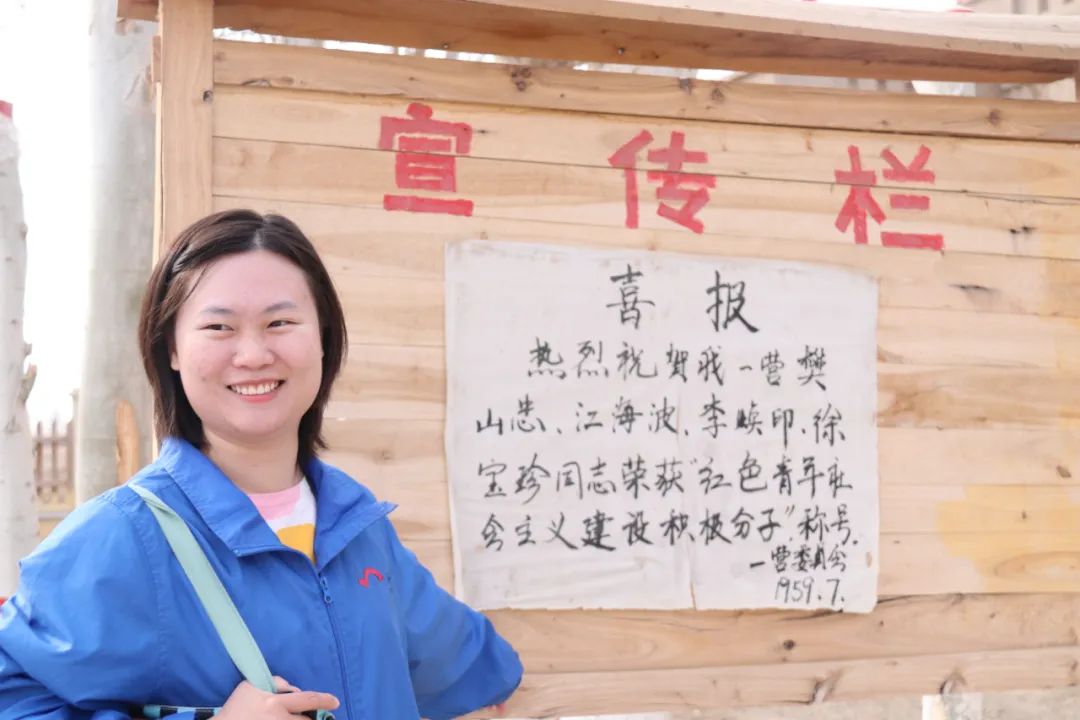 宣传栏
喜报
热烈祝贺我一营樊
山忠、江海波、李焕印、徐
宝珍同志荣获“红色青年社
会主义建设积极分子”,称号。
一营委员会
1959.7.